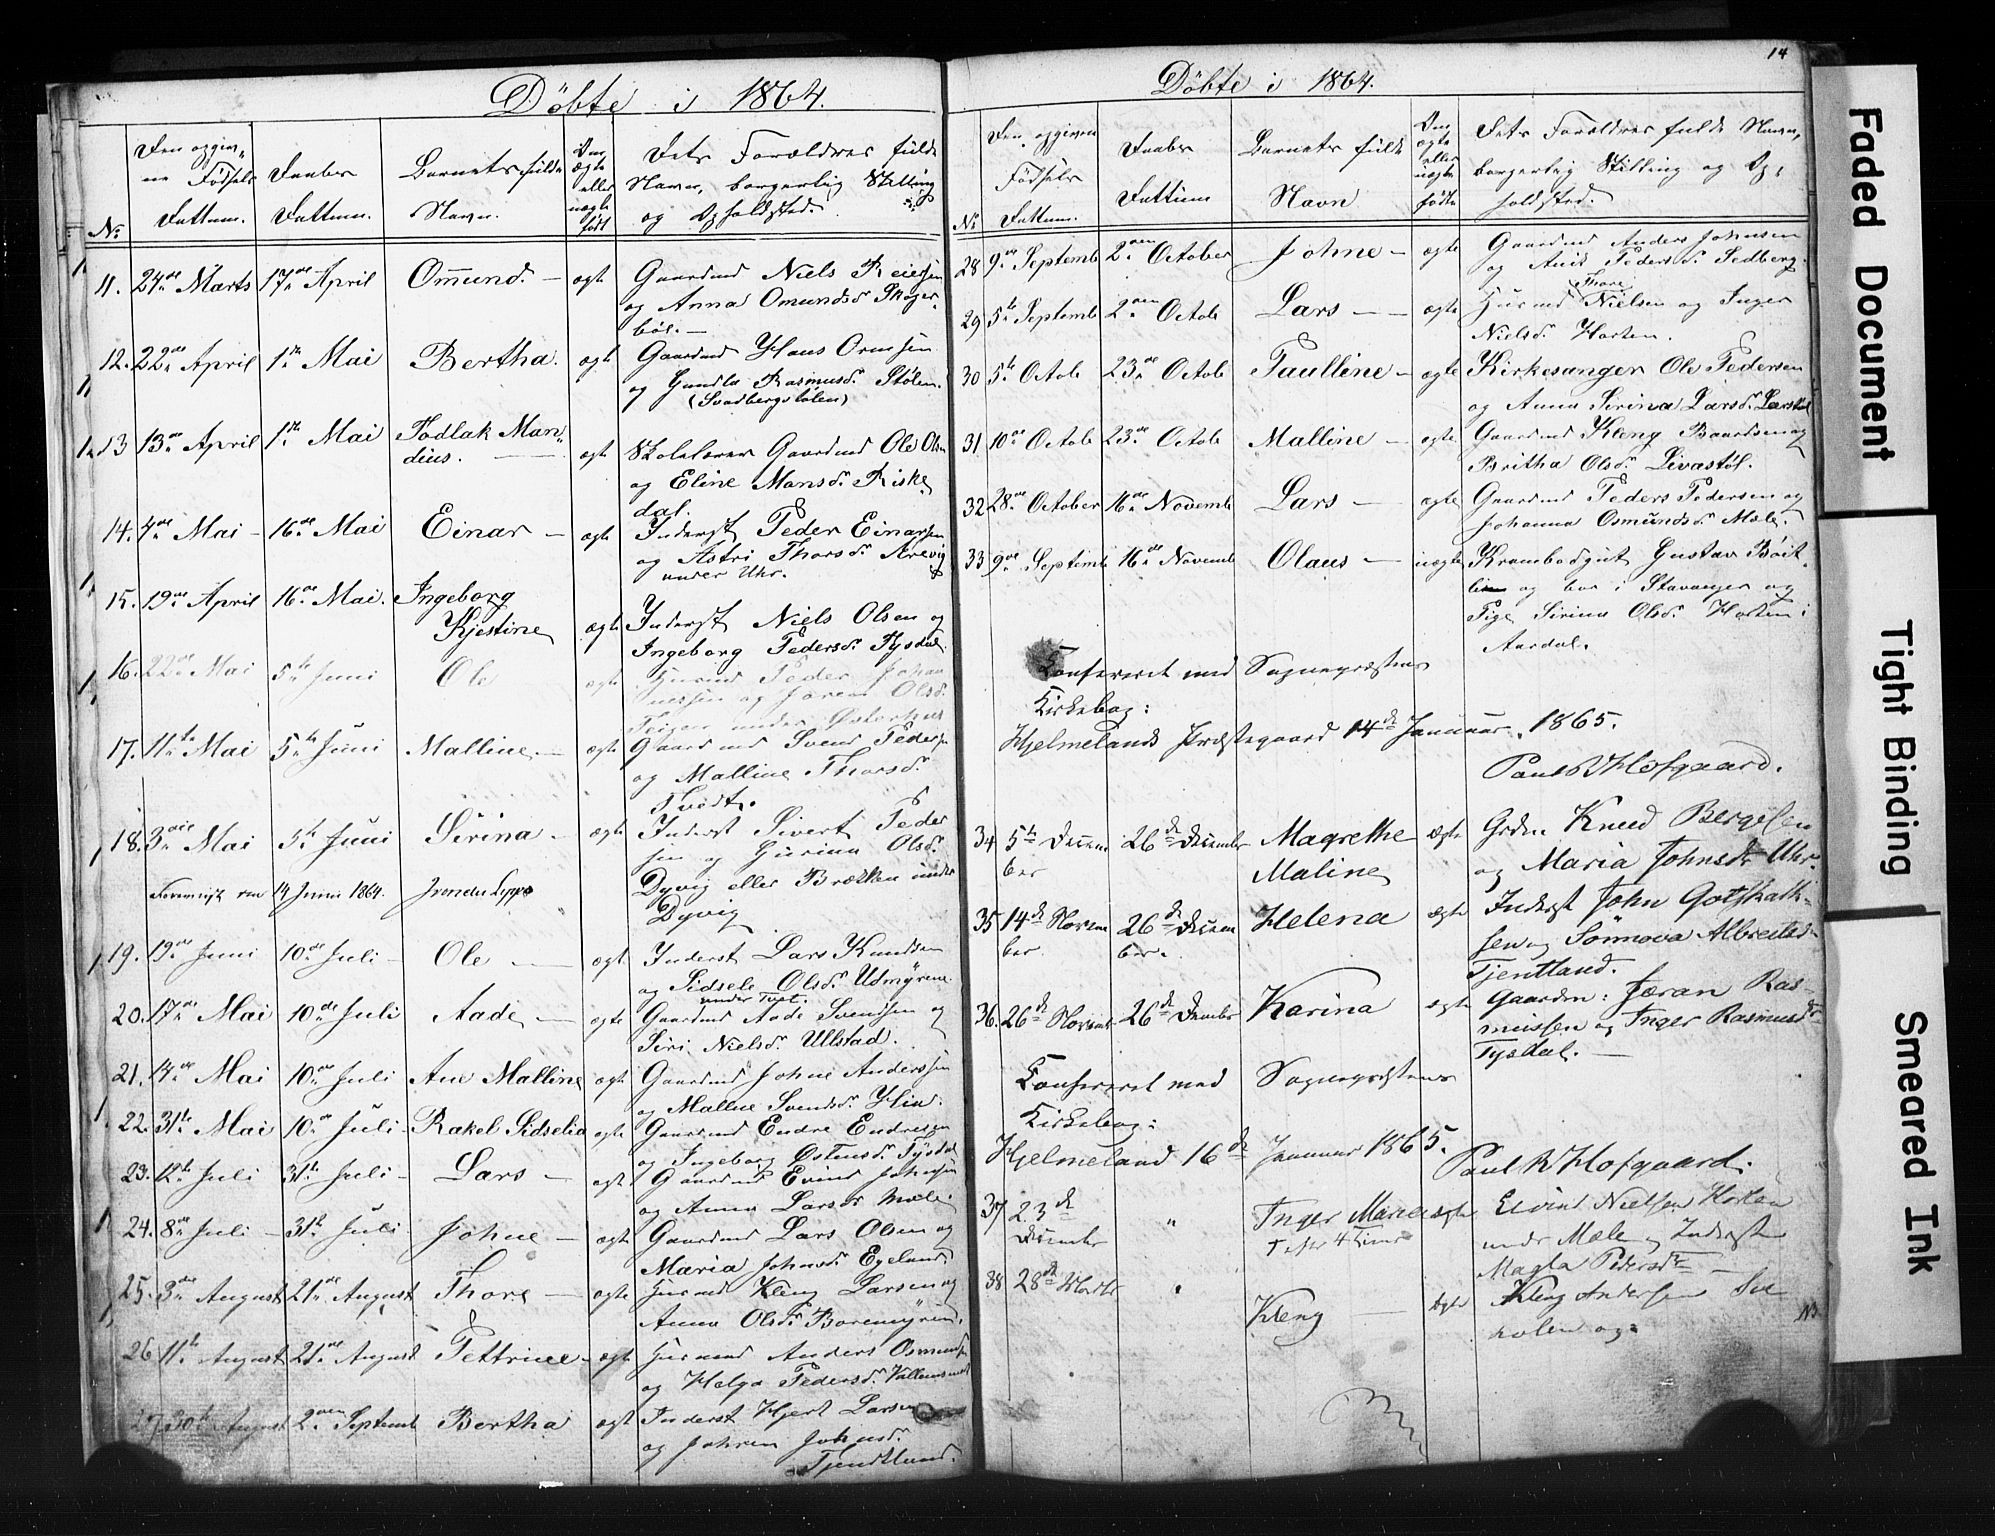 Döbte i 1864.
Den opgiv-
ne Födsels
Dattum.
Daabes
Dattum.
Barnets fulde
Navn.
Om
ægte
eller
uægte
født
Dets Forældres fulde
Navn, borgerlig Stilling
og Opholdsted.
No
11. 24de Marts 17de April Omund. — ægte Gaardmd Niels Reiersen
og Anna Omundsdr Skoger-
böe. —
12. 22de April 1ste Mai Bertha. ægte Gaardmd Hans Ormsen
og Gundla Rasmusdr Stölen.
(Svadbergstölen)
13 13de April 1ste Mai Todlak Man-
dius. — ægte Skolelærer Gaardmd Ole Olsen
og Eline Mansdr Riske
dal.
14. 4de Mai — 16de Mai Einar — ægte Inderst Peder Einarsen
og Astri Thorsdr Arevig
under Uhr.
15. 19de April 16de Mai. Ingeborg
Kjestine ægte Inderst Niels Olsen og
Ingeborg Pedersdr Tysdal.
16. 22de Mai 5te Juni Ole ægte Husmd Peder Johan
nessen og Olsdr
under Österhus
17. 11te Mai 5te Juni Malline — ægte Gaardmd Svend Peders
og Malline Thorsdr
Tvedt.
18. 3die Mai 5te Juni Sirina — ægte Inderst Sivert Peder
sen og Gurina Olsdr
Dyvig eller Brækken under
Dyvig
Foreviist den 14 Juni 1864.
19. 19de Juni 10de Juli — Ole — ægte Inderst Lars Knudsen
og Sidsele Olsdr Udmyrene
under Tvet.
20. 17de Mai 10de Juli Aade — ægte Gaardmd Aade Svendsen og
Siri Nielsdr Ullestad.
21. 14de Mai 10de Juli Ane Malline ægte Gaardmd Johne Anderssen
og Malene Svendsdr Hiin.
22. 31te Mai 10de Juli — Rakel Sidselia ægte Gaardmd Endre Endresen
og Ingeborg Östensdr Tysdal
23. 12te Juli 31te Juli — Lars — ægte Gaardmd Evind Johnsen
og Anna Larsdr Mæle.
24. 8de Juli — 31te Juli — Johne — ægte Gaardmd Lars Olsen og
Maria Johnsdr Egeland.
25. 3die August 21de August Thore — ægte Husmd Kleng Larsen og
Anna Olsdr Boremyren.
26 11te August 21de August Pettrine — ægte Husmand Anders Osmundsen
og Helga Pedersdr
27. 30te August 2den Septemb Bertha ægte Inderst Hjert Larsen
og Johren Johnsdr
Tjendtland.
14
Döbte i 1864.
Den opgivne
Födsels
Dattum.
Daabes
Dattum
Barnets fulde
Navn
Om
ægte
eller
uægte
födte
Dets Forældres fulde Navn,
borgerlig Stilling og Op-
holdsted.
No
28 9de Septemb 2den October Johne — ægte Gaardmd Anders Johnsen
og Ane Pedersdr Sedberg.
29 5te Septemb 2den Octob Lars — ægte Husmd Thore Nielsen og Inger
Nielsdr Horten.
30 5te Octob 23de Octob Paulline — ægte Kirkesanger Ole Pedersen
og Anna Sirina Larsdr
31 10de Octob 23de Octob Malline — ægte Gaardmd Kleng Baardsen og
Britha Olsdr Livastöl.
32 28de October 16de Novemb Lars — ægte Gaardmd Peders Pedersen og
Johanna Osmundsdr Mæle.
33 9de Septemb 16de Novemb Olaus — uægte Krambodgut Gustav
og bor i Stavanger og
Pige Sirina Olsdr Horten i
Aardal.
Confereret med Sognepræstens
Kirkebog:
Hjelmelands Præstegaard 14de Januar 1865.
Paul W Hofgaard.
34 5te Decem
ber 26de December Magrethe
Maline ægte Grdm Knud Bergesen
og Maria Johnsdr Uhr
35 14de Novem
ber. 26de Decem
ber. Helena ægte Inderst John Gotskalk-
sen og Sönnova Albretsd
Tjentland.
36. 26de Novemb 26de December Karina ægte Gaardm: Jæran Ras-
mussen og Inger Rasmusdr
Tysdal. —
Confereret med Sognepræstens
Kirkebog:
Hjelmeland 16de Januar 1865.
Paul W Hofgaard.
37 23de
December " Inger Marie ægte Eivind Nielsen Horten
under Mæle og Inderst
Magla Pedersdtr —
† efter 4 Timer
38 28de " Kleng — ægte Kleng Andersen
og:
Faded Document
Tight Binding
Smeared Ink